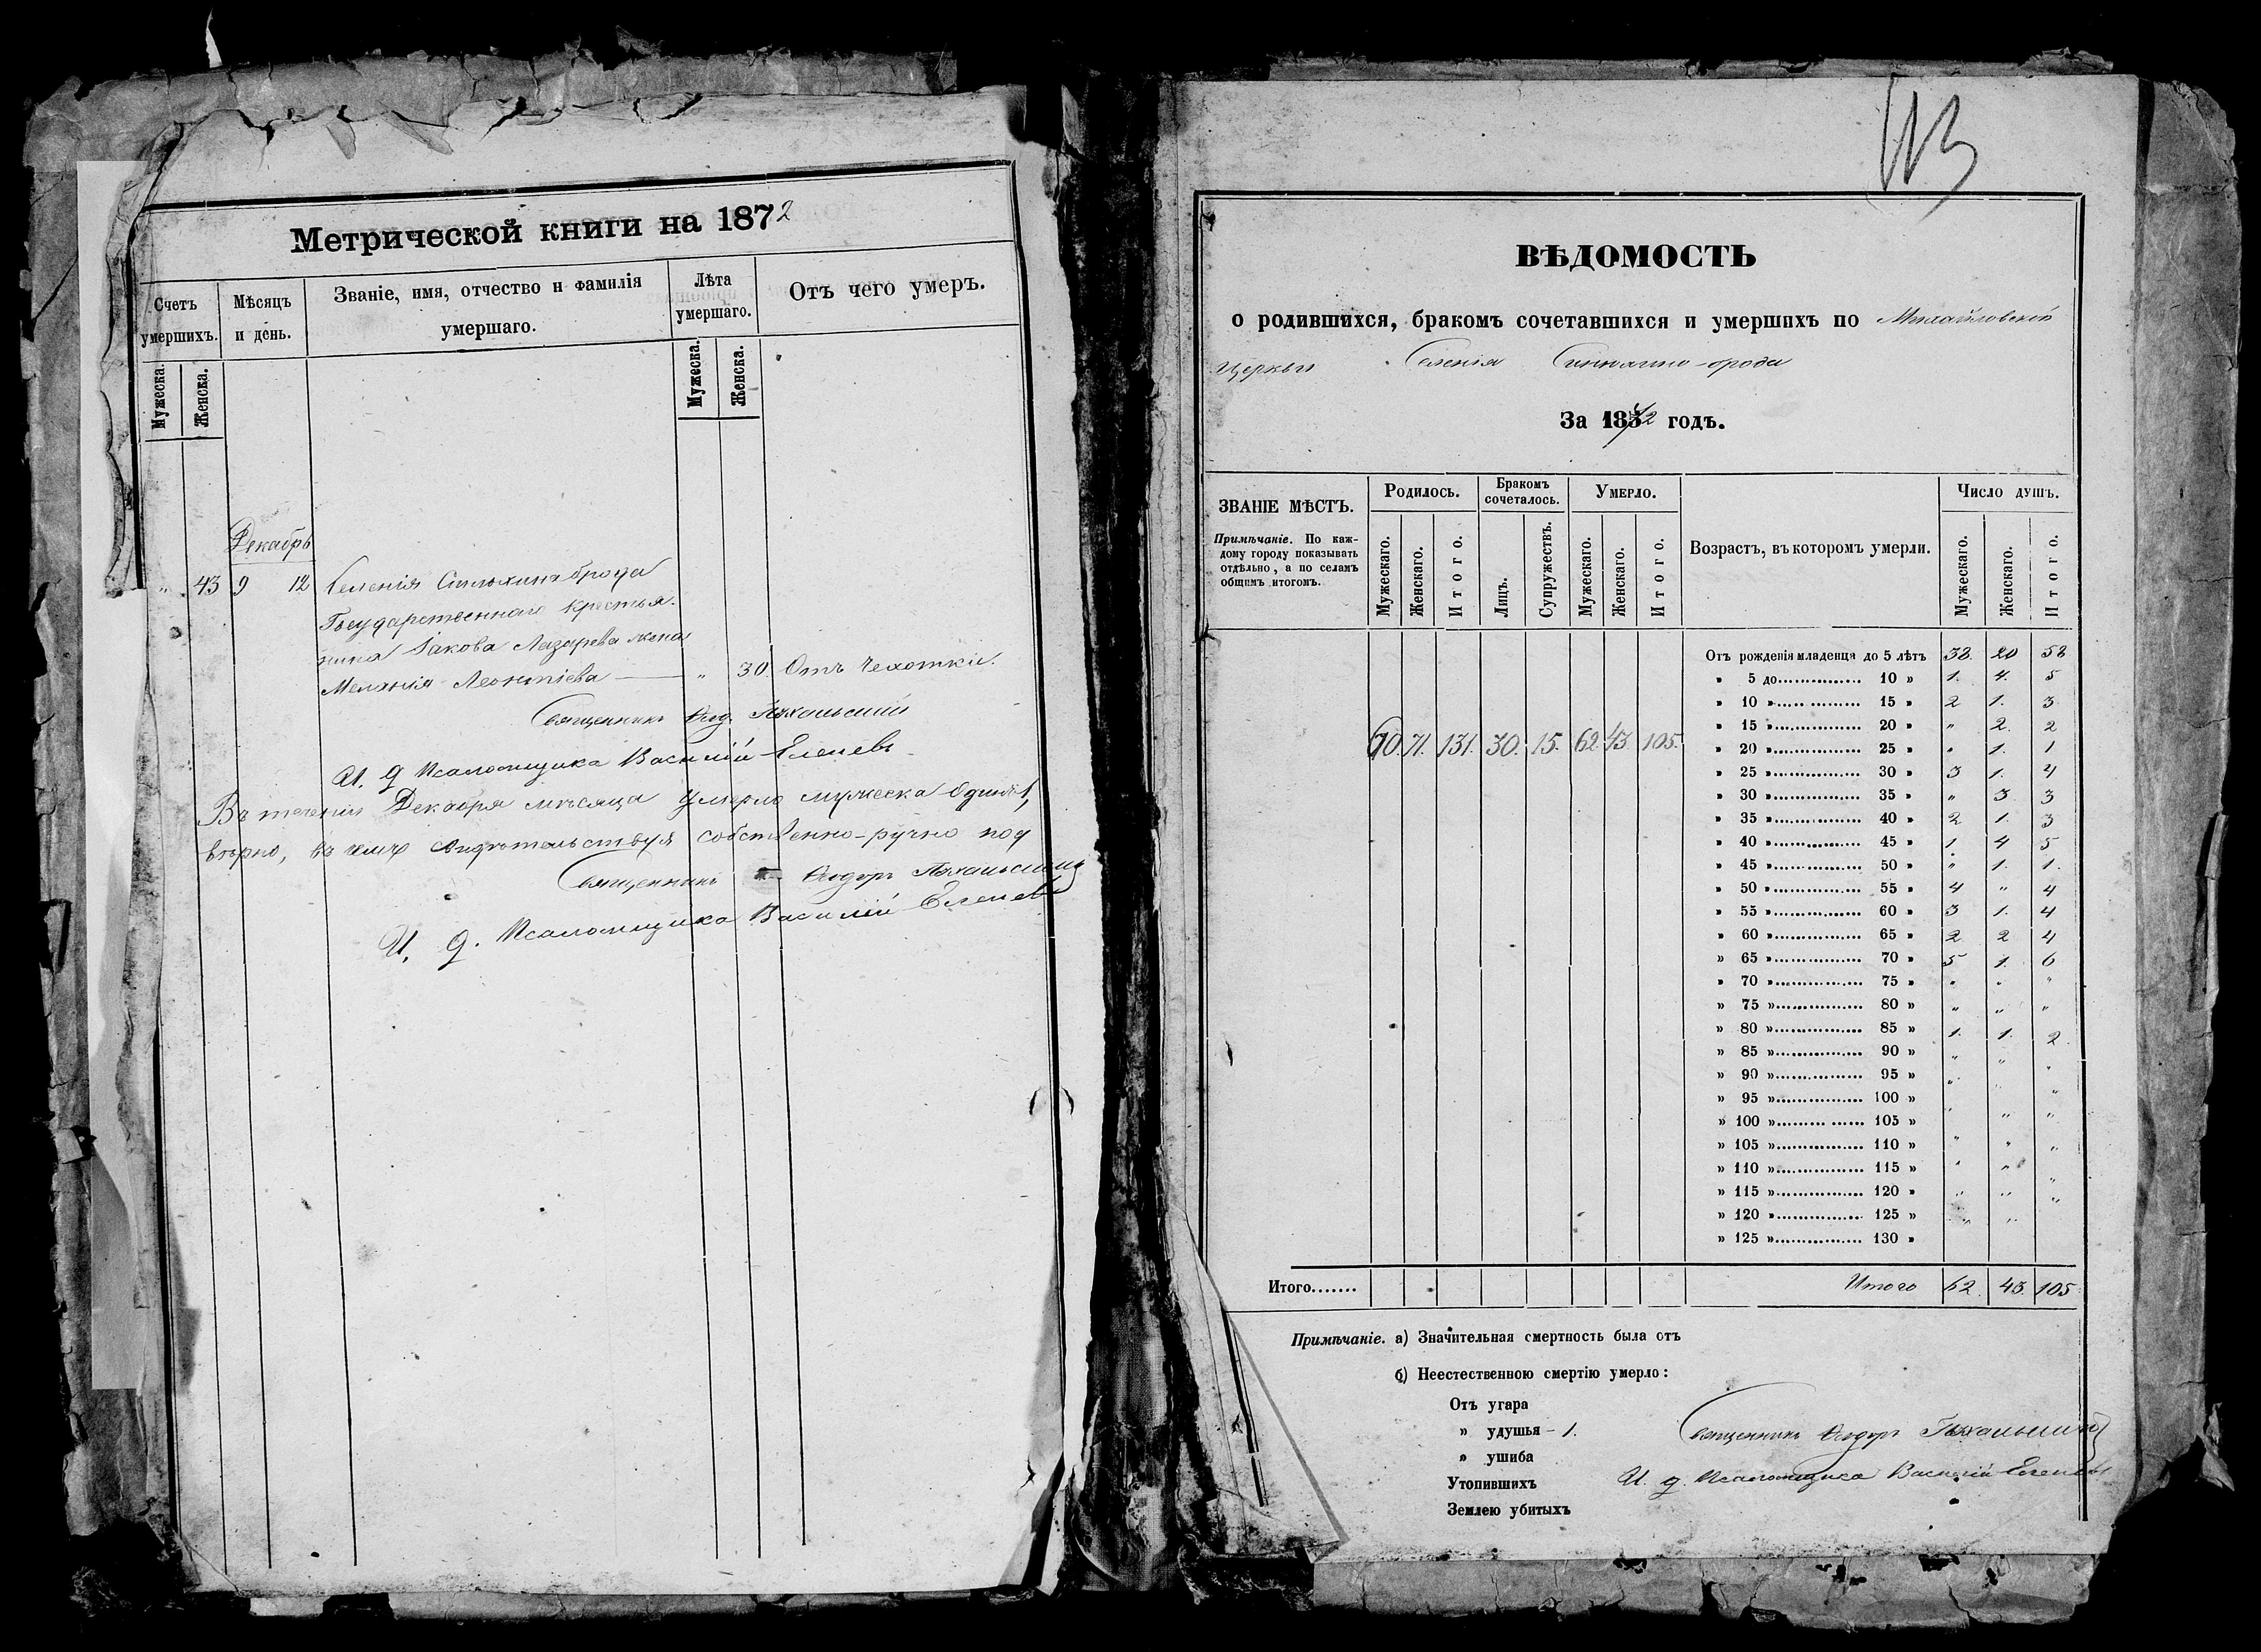 Метрической книги на 1872
Счетъ умершихъ.
Мужеска.
Женска.
Мѣсяцъ и день.
Званіе, имя, отчество и фамилія умершаго.
Лѣта умершаго.
Мужеска.
Женска.
Отъ чего умеръ.
Декабрь
" 43 9 12 Селенія
Государственнаго крестья-
нина Іакова Лазарева жена
Меланія Леонтіева — " 30. Отъ Чехотки.
Священникъ Ѳеод.
И. д. Псаломщика Василій
Въ теченіи Декабря мѣсяца умерло
вѣрно, въ чемъ свидѣтельствуя собственно-ручно под
Священникъ Ѳеодоръ
И. д. Псаломщика Василій
113
ВѢДОМОСТЬ
о родившихся, бракомъ сочетавшихся и умершихъ по Михайловской
Церкви Селенія
За 1872 годъ.
ЗВАНІЕ МѢСТЪ.
Примѣчаніе. По каж-
дому городу показывать
отдѣльно, а по селамъ
общимъ итогомъ.
Родилось.
Мужескаго.
Женскаго.
Итого.
Бракомъ сочеталось.
Лицъ.
Супружествъ.
Умерло.
Мужескаго.
Женскаго.
Итого.
Возрастъ, въ которомъ умерли.
Число душъ.
Мужескаго.
Женскаго.
Итого.
71. 131. 30. 15. 62. 43. 105.
Отъ рожденія младенца до 5 лѣтъ 38. 20 58
» 5 до............... 10 » 1. 4. 5
» 10 »............... 15 » 2 1. 3
» 15 »............... 20 » " 2. 2
» 20 »............... 25 » " 1. 1
» 25 »............... 30 » 3 1. 4
» 30 »............... 35 » " 3 3
» 35 »............... 40 » 2 1. 3
» 40 »............... 45 » 1 4 5
» 45 »............... 50 » " 1. 1.
» 50 »............... 55 » 4 " 4
» 55 »............... 60 » 3 1. 4
» 60 »............... 65 » 2 2 4
» 65 »............... 70 » 5 1. 6
» 70 »............... 75 » " " "
» 75 »............... 80 » " " "
» 80 »............... 85 » 1. 1. 2.
» 85 »............... 90 » " " "
» 90 »............... 95 » " " "
» 95 »............... 100 » " " "
» 100 »............... 105 » " " "
» 105 »............... 110 » " " "
» 110 »............... 115 » " " "
» 115 »............... 120 » " " "
» 120 »............... 125 » " "
» 125 »............... 130 »
Итого....... Итого 62. 43. 105
Примѣчаніе. а) Значительная смертность была отъ
б) Неестественною смертію умерло:
Отъ угара
» удушья – 1.
» ушиба
Утопившихъ
Землею убитыхъ
Священникъ Ѳеодоръ
И. д. Псаломщика Василій